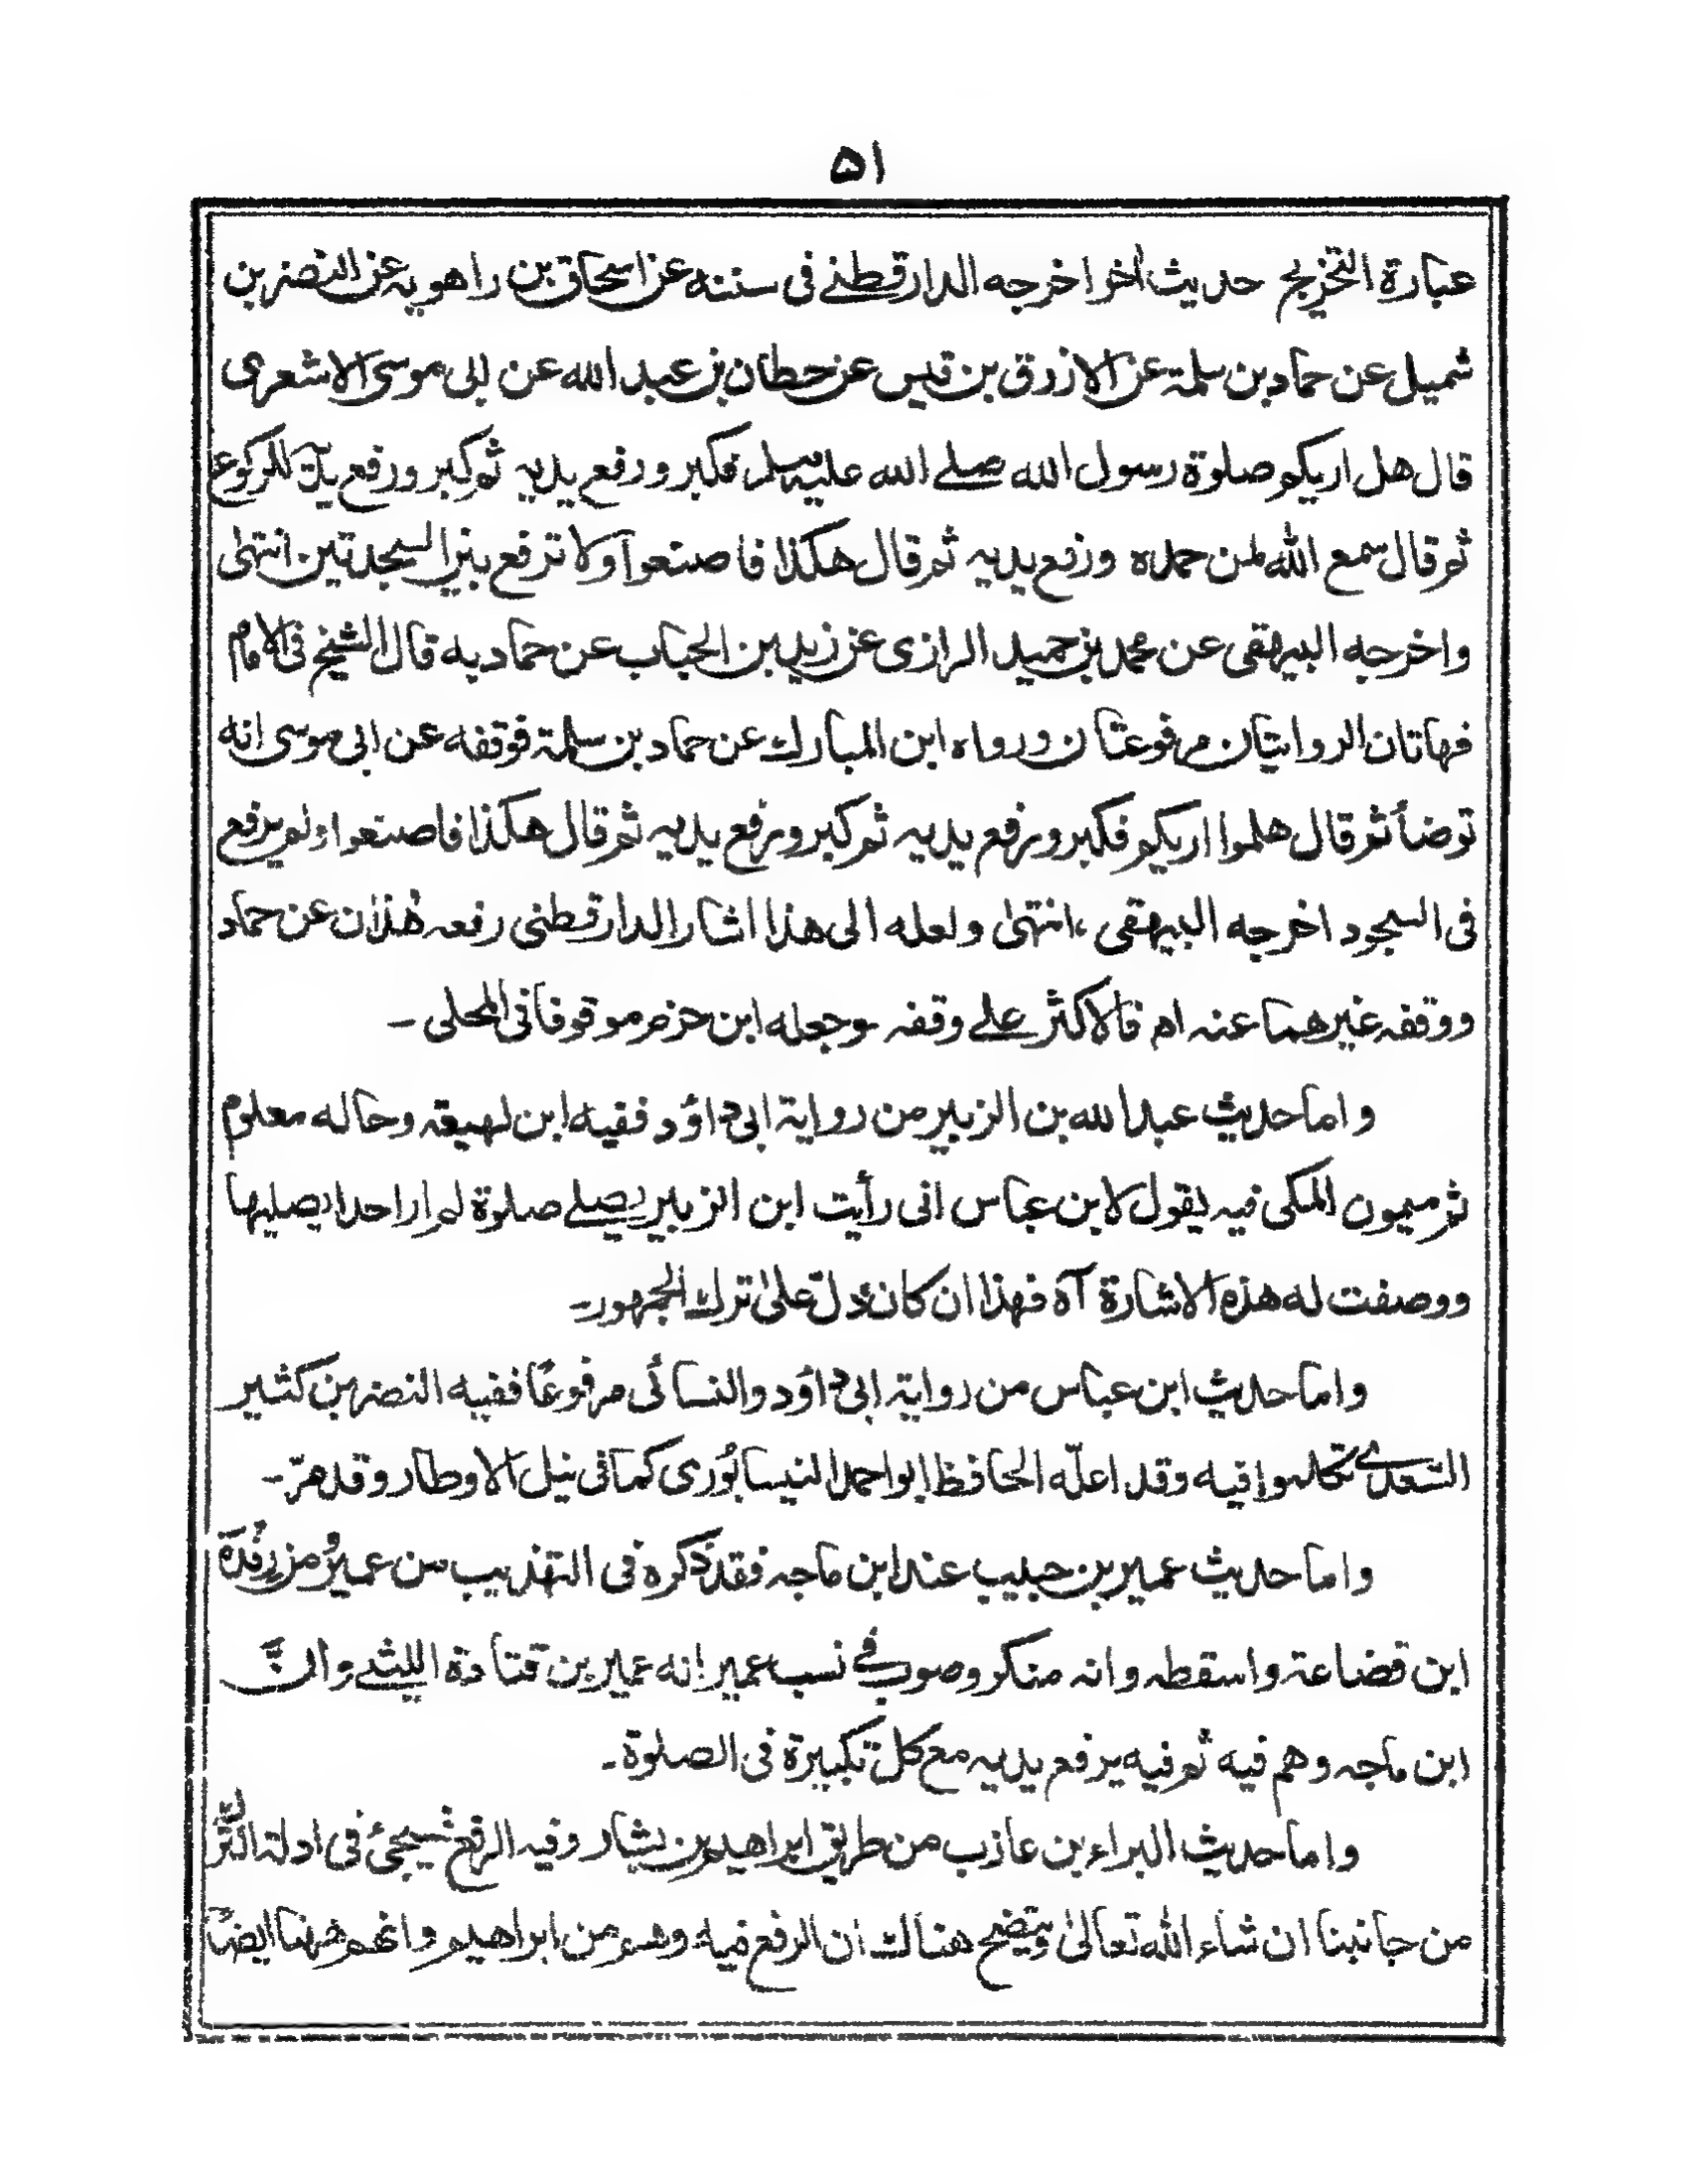 ۵۱
عبارة التخريج حديث اٰخر اخرجه الدارقطنے فى سننه عن اسحاق بن راهويه عن النضر بن
شميل عن حماد بن سلمة عن الازرق بن قيس عن حطان بن عبد الله عن ابى موسى الاشعرى
قال هل اريكم صلوة رسول الله صلے الله عليه وسلم فكبر ورفع يديه ثم كبر ورفع يديه للركوع
ثم قال سمع الله لمن حمده ورفع يديه ثم قال هكذا فاصنعوا ولا ترفع بين السجدتين انتهٰى
واخرجه البيهقى عن محمد بن حميد الرازى عن زيد بن الحباب عن حماد به قال الشيخ فى الامام
فهاتان الروايتان مرفوعتان ورواه ابن المبارك عن حماد بن سلمة فوقفه عن ابى موسى انه
توضأ ثم قال هلموا اريكم فكبر ورفع يديه ثم كبر ورفع يديه ثم قال هكذا فاصنعوا ولم يرفع
فى السجود اخرجه البيهقى، انتهٰى ولعله الى هذا اشار الدارقطنى رفعه هٰذان عن حماد
ووقفه غيرهما عنه اه فالاكثر علے وقفه وجعله ابن حزم موقوفا فى المحلى ـ
واما حديث عبد الله بن الزبير من رواية ابى داؤد ففيه ابن لهيعة وحاله معلوم
ثم ميمون المكى فيه يقول لابن عباس انى رأيت ابن الزبير يصلے صلوة لم ار احدا يصليها
ووصفت له هذه الاشارة آه فهذا ان كان دلّ علىٰ ترك الجمهورـ
واما حديث ابن عباس من رواية ابى داؤد والنسائى مرفوعًا ففيه النضر بن كثير
السّعدے تكلموا فيه وقد اعلّه الحافظ ابو احمد النيسابُورى كما فى نيل الاوطار وقد مرّ ـ
واما حديث عمير بن حبيب عند ابن ماجه فقد ذكره فى التهذيب من عمير من رفدة
ابن قضاعة واسقطه وانه منكر وصوب فے نسب عمير انه عمير بن قتادة الليثے وانّ
ابن ماجه وهم فيه ثم فيه يرفع يديه مع كل تكبيرة فى الصلوة ـ
واما حديث البراء بن عازب من طريق ابراهيم بن بشار وفيه الرفع فسيجئ فى ادلة الترك
من جانبنا ان شاء الله تعالىٰ ويتضح هناك ان الرفع فيه وهم من ابراهيم وانهم ههنا ايضًا